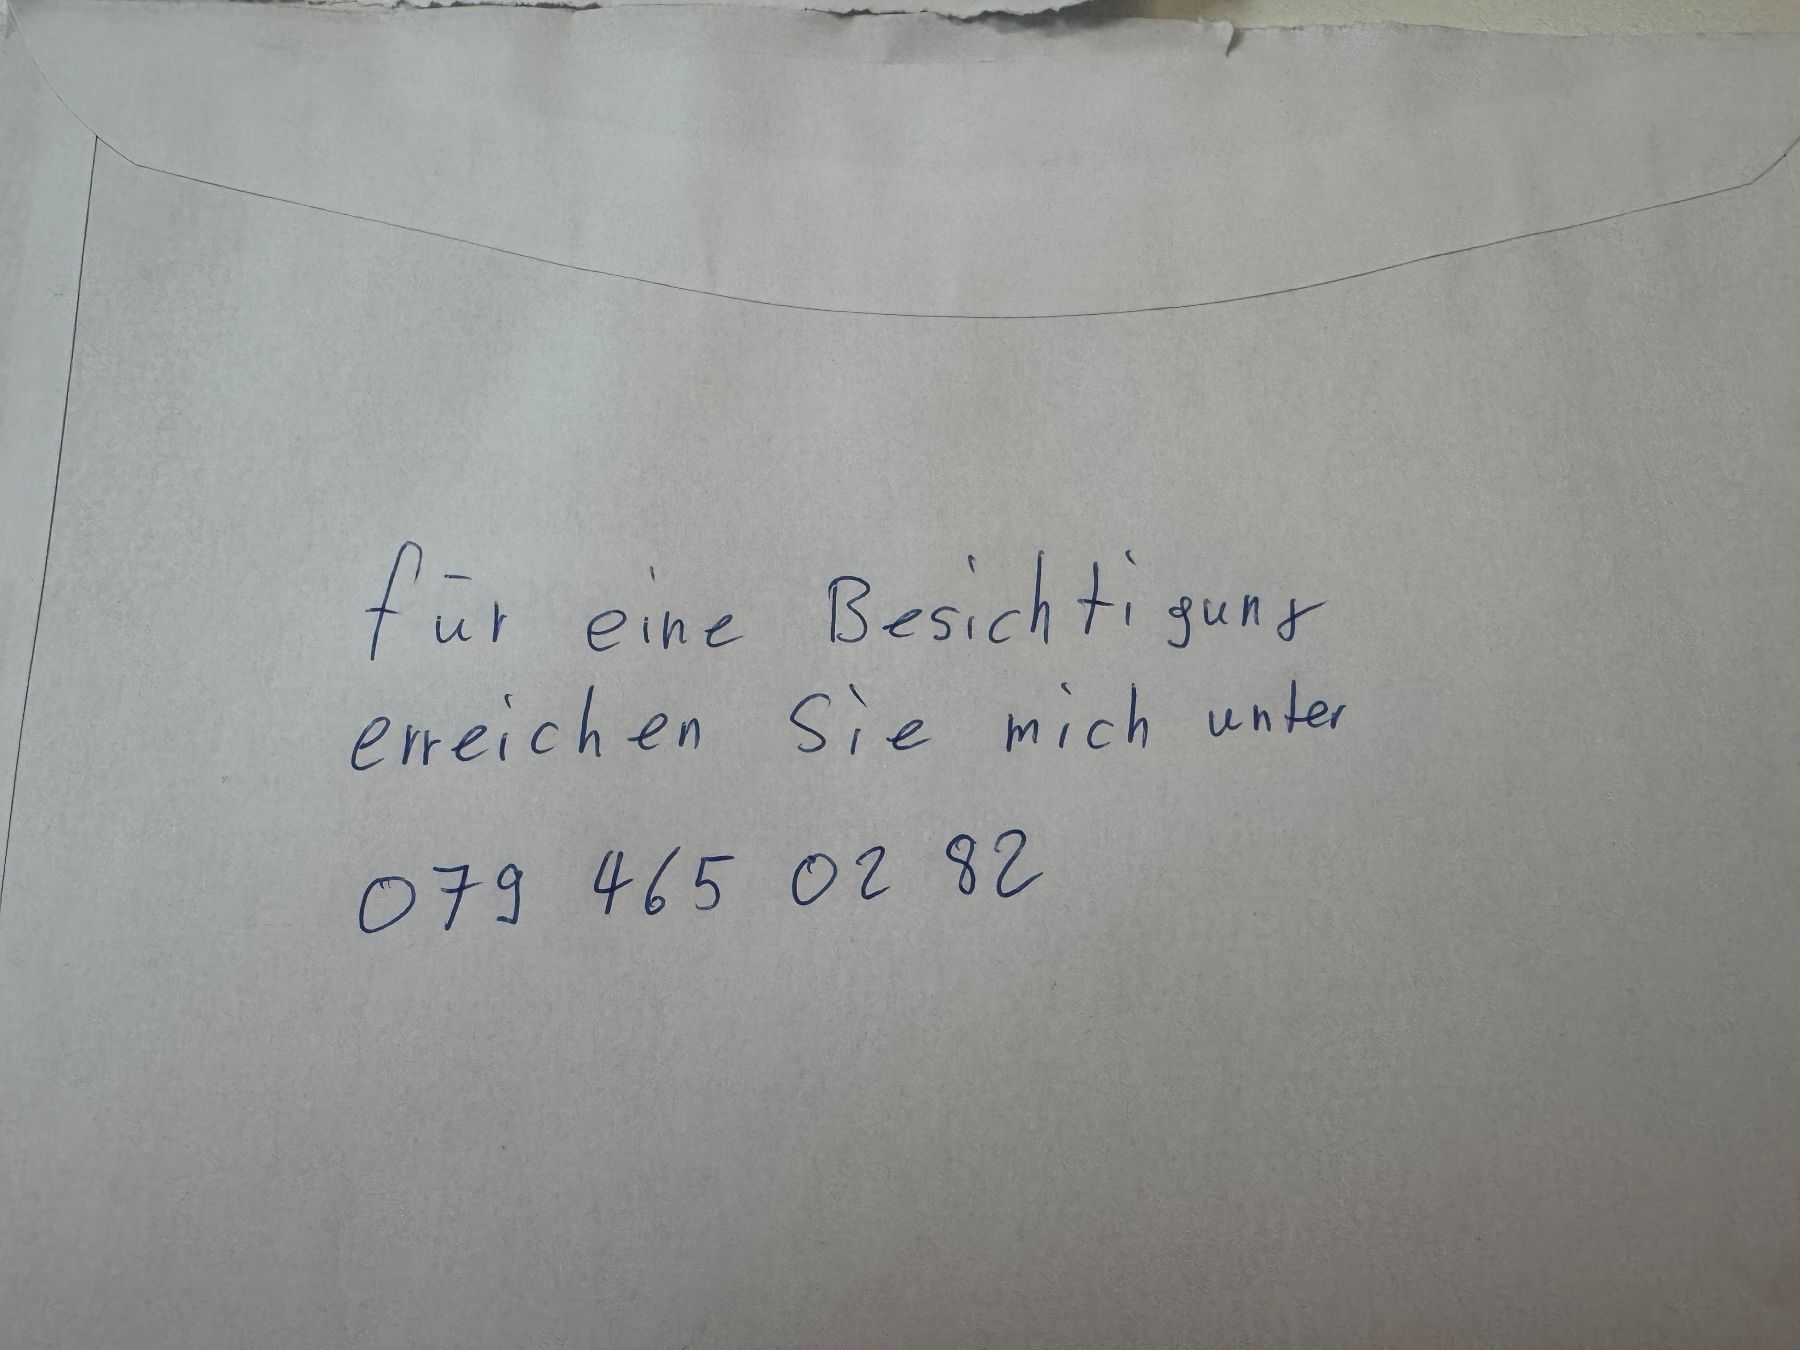 für eine Besichtigung
erreichen Sie mich unter
079 465 02 82